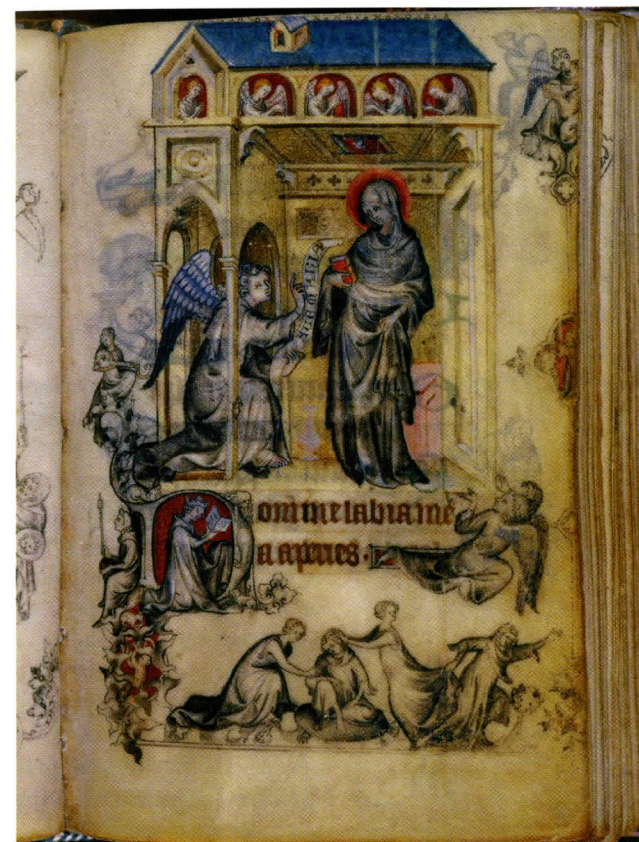 Domine labia me
a aperies.